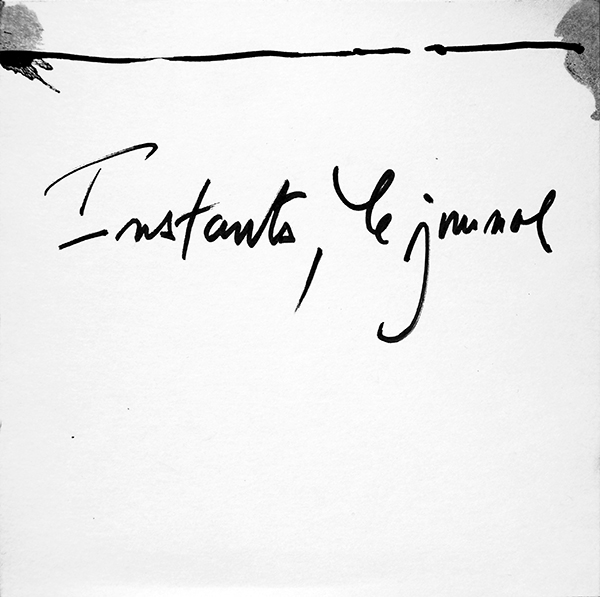 Instants, le journal